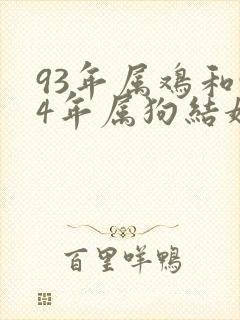 93年属鸡和
4年属狗结
百里咩鸭